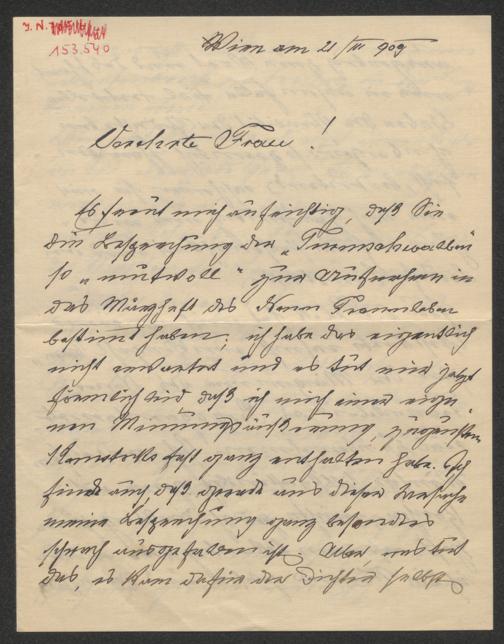 J. N.
153.540
Wien am 21/III 909
Verehrte Frau!
Es freut mich aufrichtig, daß Sie
die Besprechung der „Turmschwalben"
so „mutvoll" zur Aufnahme in
das Märzheft des Neuen Frauenleben
bestimmt haben; ich habe das eigentlich
nicht erwartet und es tut mir jetzt
förmlich leid, daß ich mich einer eige-
nen Meinungsäußerung, zugunsten
fast ganz enthalten habe. Ich
finde auch, daß gerade aus dieser Ursache
meine Besprechung ganz besonders
schwach ausgefallen ist. Aber, was tut
das, es kam dafür der Dichter selbst